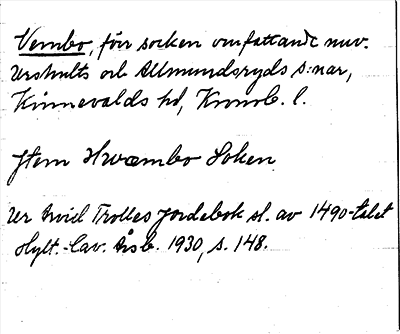 Vembo, förr socken omfattande nuv.
Urshults och Almundsryds s:nar,
Kinnevalds hd, Kronob. l.
Jtem Hwæmbo Soken
Ur Arvid Trolles jordebok sl. av 1490-talet
Hylt.-Cav. Årsb. 1930, s. 148.